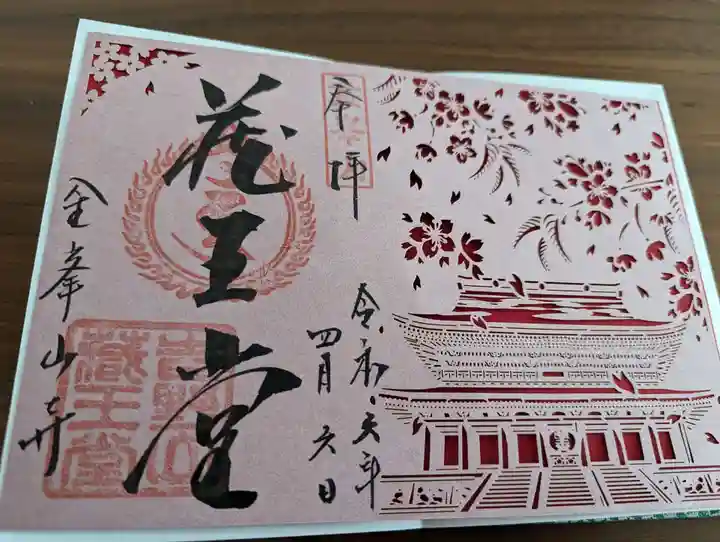 奉拝
令和六年
四月六日
蔵王堂
金峯山寺
吉野山
藏王堂